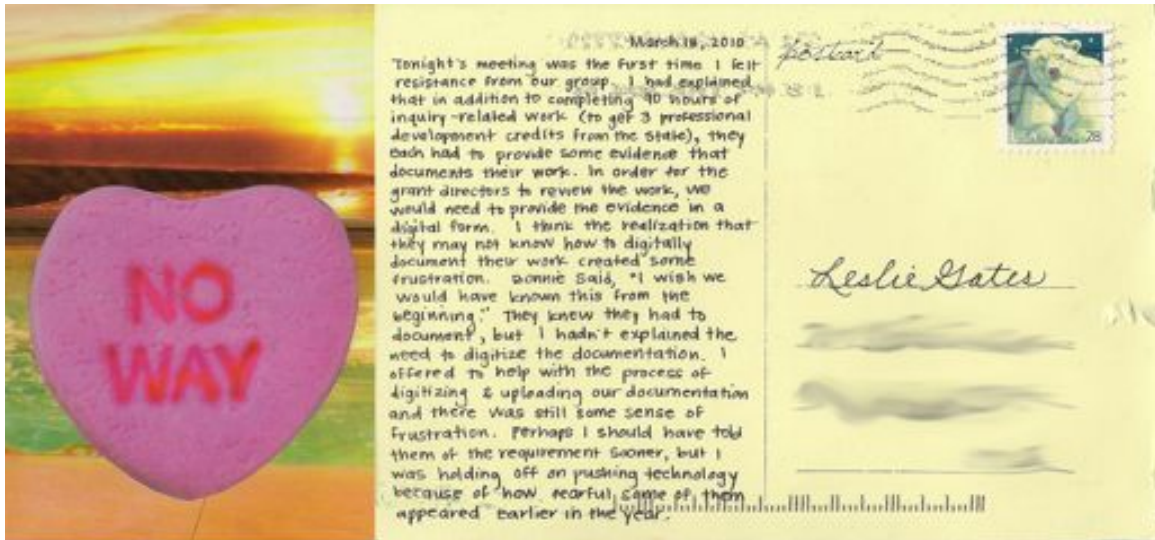 NO
WAY
March 18, 2010
Tonight's meeting was the first time I felt
resistance from our group. I had explained
that in addition to completing 90 hours of
inquiry-related work (to get 3 professional
development credits from the state), they
each had to provide some evidence that
documents their work. In order for the
grant directors to review the work, we
would need to provide the evidence in a
digital form. I think the realization that
they may not know how to digitally
document their work created some
frustration. Bonnie said, "I wish we
would have known this from the
beginning." They knew they had to
document, but I hadn't explained the
need to digitize the documentation. I
offered to help with the process of
digitizing & uploading our documentation
and there was still some sense of
frustration. Perhaps I should have told
them of the requirement sooner, but I
was holding off on pushing technology
because of how fearful some of them
appeared earlier in the year.
postcard
28
Leslie Gates